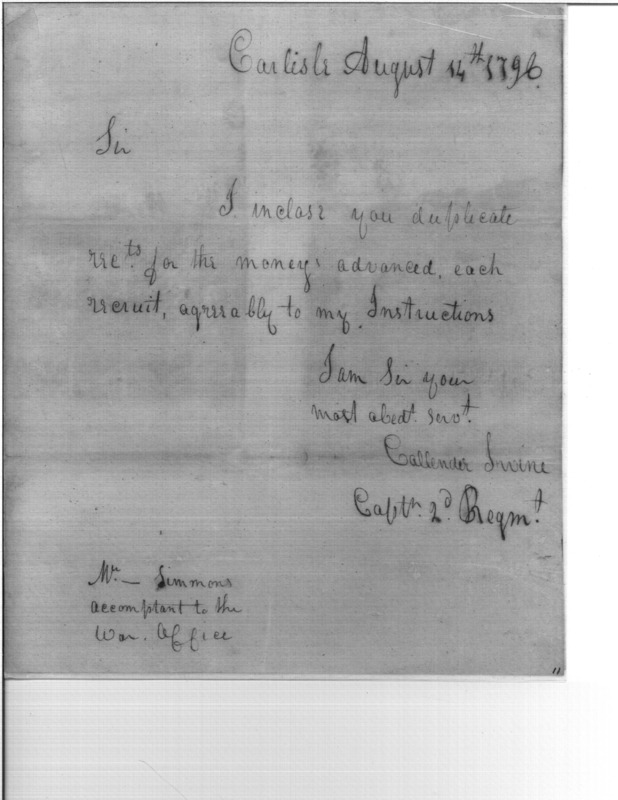 Carlisle August 14th 1796.
Sir
I inclose you duplicate
rects. for the moneys advanced, each
recruit, agreeably to my Instructions
I am Sir your
most obedt. servt.
Callender Irvine
Captn. 2d. Regmt.
Mr. — Simmons
accomptant to the
War. Office